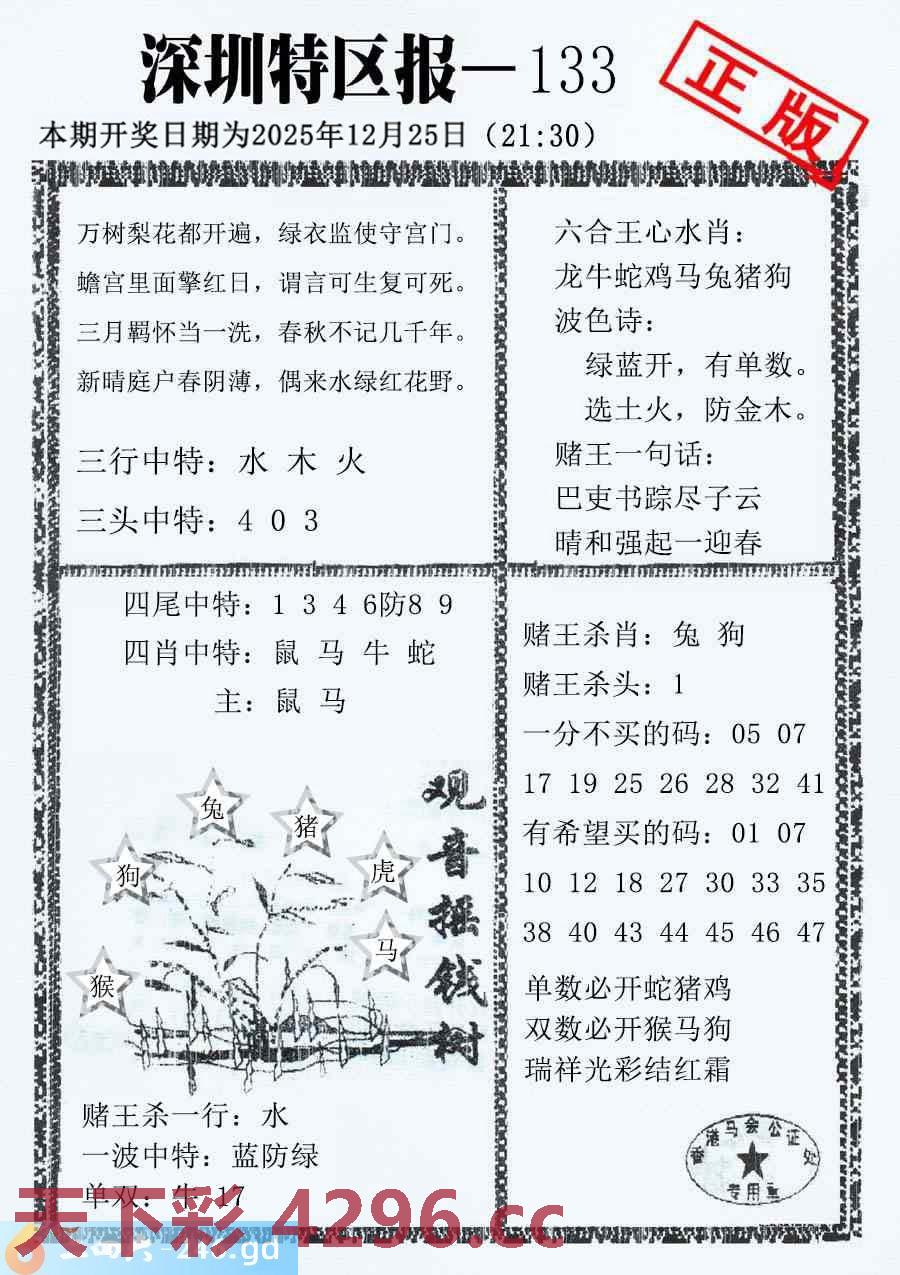 深圳特区报—133
正版
本期开奖日期为2025年12月25日（21:30）
万树梨花都开遍，绿衣监使守宫门。
蟾宫里面擎红日，谓言可生复可死。
三月羁怀当一洗，春秋不记几千年。
新晴庭户春阴薄，偶来水绿红花野。
三行中特：水 木 火
三头中特：4 0 3
六合王心水肖：
龙牛蛇鸡马兔猪狗
波色诗：
绿蓝开，有单数。
选土火，防金木。
赌王一句话：
巴吏书踪尽子云
晴和强起一迎春
四尾中特：1 3 4 6防8 9
四肖中特：鼠 马 牛 蛇
主：鼠 马
兔
猪
狗
虎
马
猴
观音摇钱树
赌王杀一行：水
一波中特：蓝防绿
单双：牛 17
赌王杀肖：兔 狗
赌王杀头：1
一分不买的码：05 07
17 19 25 26 28 32 41
有希望买的码：01 07
10 12 18 27 30 33 35
38 40 43 44 45 46 47
单数必开蛇猪鸡
双数必开猴马狗
瑞祥光彩结红霜
香港马会公证处
专用章
天下彩 4296.cc